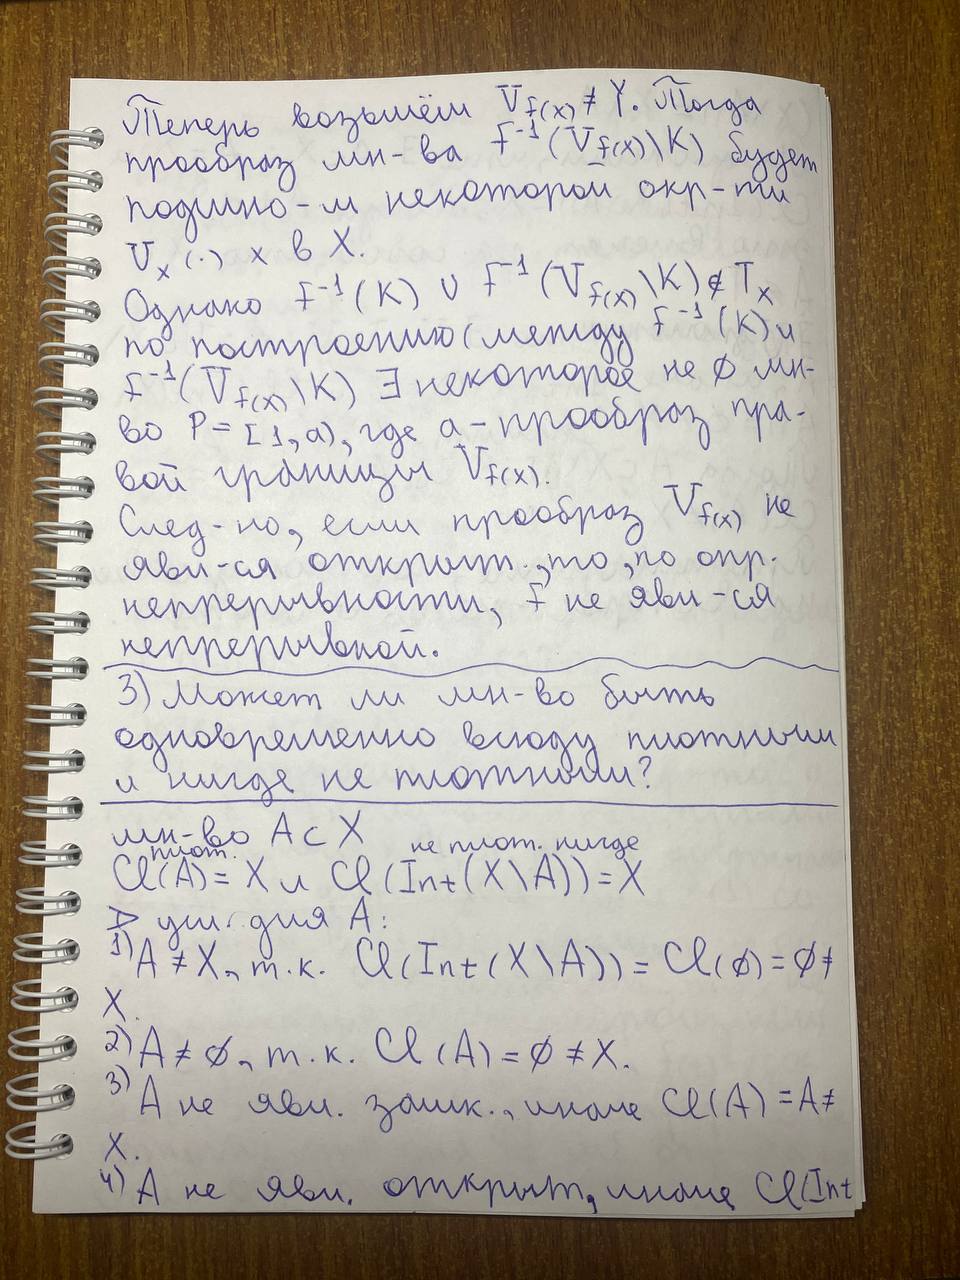 Теперь возьмём V_f(x) ≠ Y. Тогда
прообраз мн-ва f⁻¹(V_f(x)\K) будет
подмно-м некоторой окр-ти
U_x (·) x в X.
Однако f⁻¹(K) ∪ f⁻¹(V_f(x)\K) ∉ T_x
по построению (между f⁻¹(K) и
f⁻¹(V_f(x)\K) ∃ некоторое не ∅ мн-
во P = [1, a), где a - прообраз пра-
вой границы V_f(x).
След-но, если прообраз V_f(x) не
явл-ся открыт., то, по опр.
непрерывности, f не явл-ся
непрерывной.
3) Может ли мн-во быть
одновременно всюду плотным
и нигде не плотным?
мн-во A ⊂ X
плот. не плот. нигде
Cl(A) = X и Cl(Int(X\A)) = X
▷ усл. для A:
1) A ≠ X, т.к. Cl(Int(X\A)) = Cl(∅) = ∅ ≠
X.
2) A ≠ ∅, т.к. Cl(A) = ∅ ≠ X.
3) A не явл. замк., иначе Cl(A) = A ≠
X.
4) A не явл. открыт, иначе Cl(Int